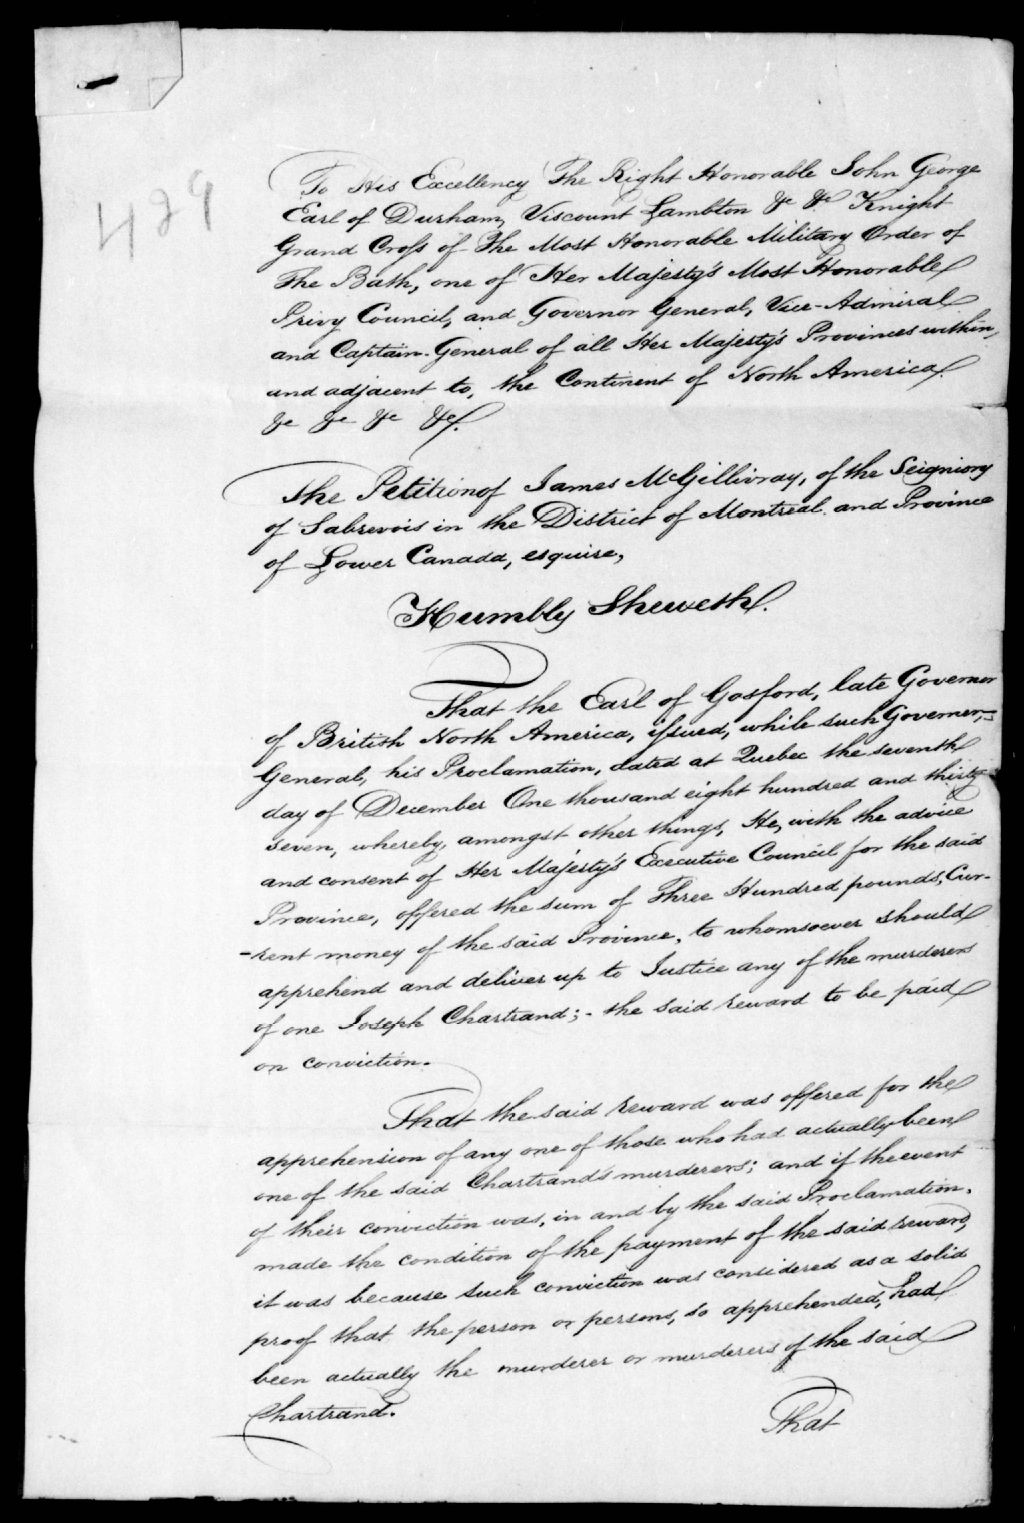 429
To His Excellency The Right Honorable John George
Earl of Durham, Viscount Lambton &c &c Knight
Grand Cross of The Most Honorable Military Order of
The Bath, one of Her Majesty's Most Honorable
Privy Council, and Governor General, Vice-Admiral
and Captain-General of all Her Majesty's Provinces within,
and adjacent to, the Continent of North America.
&c &c &c &c.
The Petition of James McGillivray, of the Seigniory
of Sabrevois in the District of Montreal and Province
of Lower Canada, esquire,
Humbly Sheweth.
That the Earl of Gosford, late Governor
of British North America, issued, while such Governor,
General, his Proclamation, dated at Quebec the seventh
day of December One thousand eight hundred and thirty
seven, whereby, amongst other things, He, with the advice
and consent of Her Majesty's Executive Council for the said
Province, offered the sum of Three Hundred pounds, Cur-
-rent money of the said Province, to whomsoever should
apprehend and deliver up to Justice any of the murderers
of one Joseph Chartrand;- the said reward to be paid
on conviction.
That the said reward was offered for the
apprehension of any one of those who had actually been
one of the said Chartrand's murderers; and if the event
of their conviction was, in and by the said Proclamation,
made the condition of the payment of the said reward,
it was because such conviction was considered as a solid
proof that the person or persons, so apprehended, had
been actually the murderer or murderers of the said
Chartrand.
That